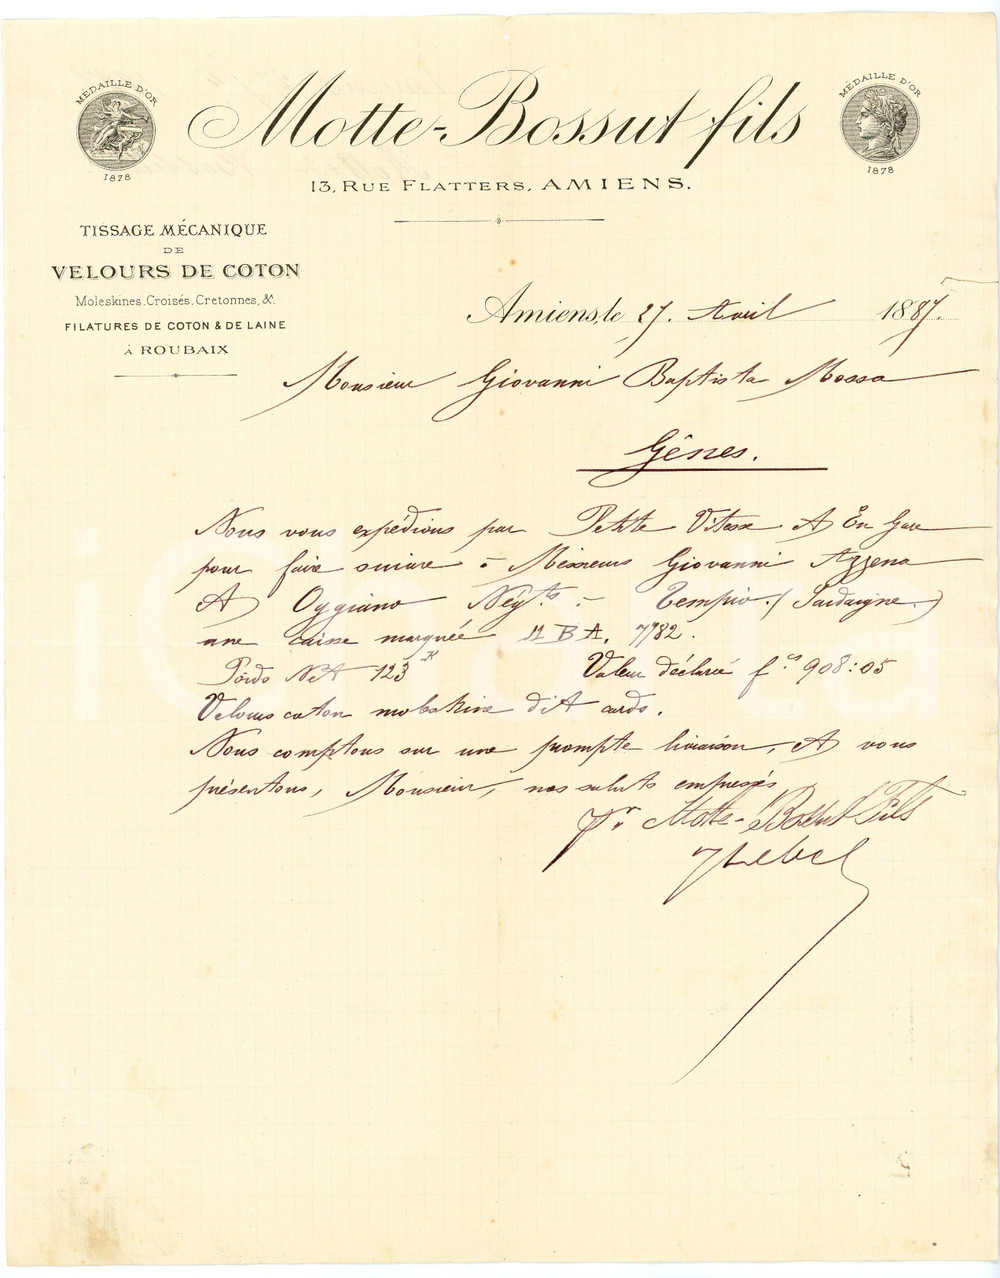 MÉDAILLE D'OR
1878
Motte-Bossut fils
MÉDAILLE D'OR
1878
13, RUE FLATTERS, AMIENS.
TISSAGE MÉCANIQUE
DE
VELOURS DE COTON
Moleskines, Croisés, Cretonnes, &.
FILATURES DE COTON & DE LAINE
À ROUBAIX
Amiens, le 27 Avril 1887.
Monsieur Giovanni Baptista Mossa
Gênes.
Nous vous expédions par Petite Vitesse et En Gare
pour faire suivre à Messieurs Giovanni Azzena
et Oggiano Négts à Tempio (Sardaigne.)
une caisse marquée 7782.
Poids Net 123 K Valeur déclarée fcs 908:05
Velours coton moleskine dit cords.
Nous comptons sur une prompte livraison, et vous
présentons, Monsieur, nos saluts empressés
Pr Motte-Bossut Fils